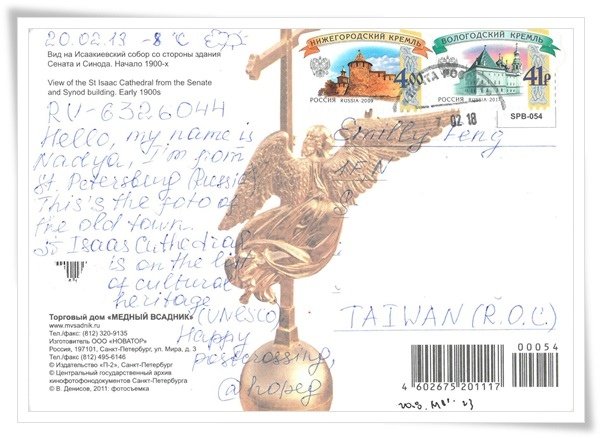 20.02.13 -8°C
Вид на Исаакиевский собор со стороны здания
Сената и Синода. Начало 1900-х
View of the St Isaac Cathedral from the Senate
and Synod building. Early 1900s
RU-6326044
Hello, my name is
Nadya, I'm from
St. Petersburg (Russia)
This is the foto of
the old town.
St Isaas Cathedral
is on the list
of cultural
heritage
(UNESCO)
Happy
postcrossing,
Торговый дом «МЕДНЫЙ ВСАДНИК»
www.mvsadnik.ru
Тел./факс: (812) 320-9135
Изготовитель ООО «НОВАТОР»
Россия, 197101, Санкт-Петербург, ул. Мира, д. 3
Тел./факс (812) 495-6146
© Издательство «П-2», Санкт-Петербург
© Центральный государственный архив
кинофотофонодокументов Санкт-Петербурга
© В. Денисов, 2011: фотосъемка
НИЖЕГОРОДСКИЙ КРЕМЛЬ
4.00
РОССИЯ RUSSIA·2009
ВОЛОГОДСКИЙ КРЕМЛЬ
41р
РОССИЯ
SPB-054
02 18
Feng
TAIWAN (R.O.C)
00054
4602675201117